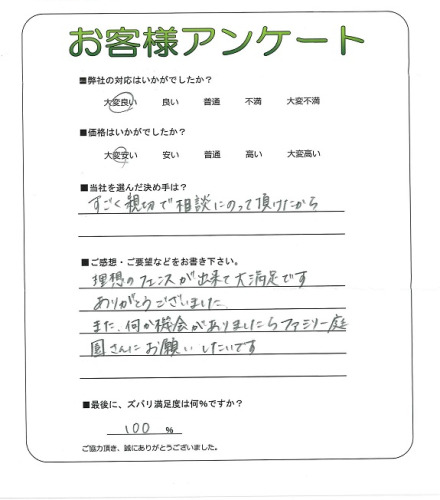 お客様アンケート
■弊社の対応はいかがでしたか？
大変良い 良い 普通 不満 大変不満
■価格はいかがでしたか？
大変安い 安い 普通 高い 大変高い
■当社を選んだ決め手は？
すごく親切で相談にのって頂けたから
■ご感想・ご要望などをお書き下さい。
理想のフェンスが出来て大満足です
ありがとうございました。
また、何か機会がありましたらファミリー庭
園さんにお願いしたいです
■最後に、ズバリ満足度は何%ですか？
100 %
ご協力頂き、誠にありがとうございました。